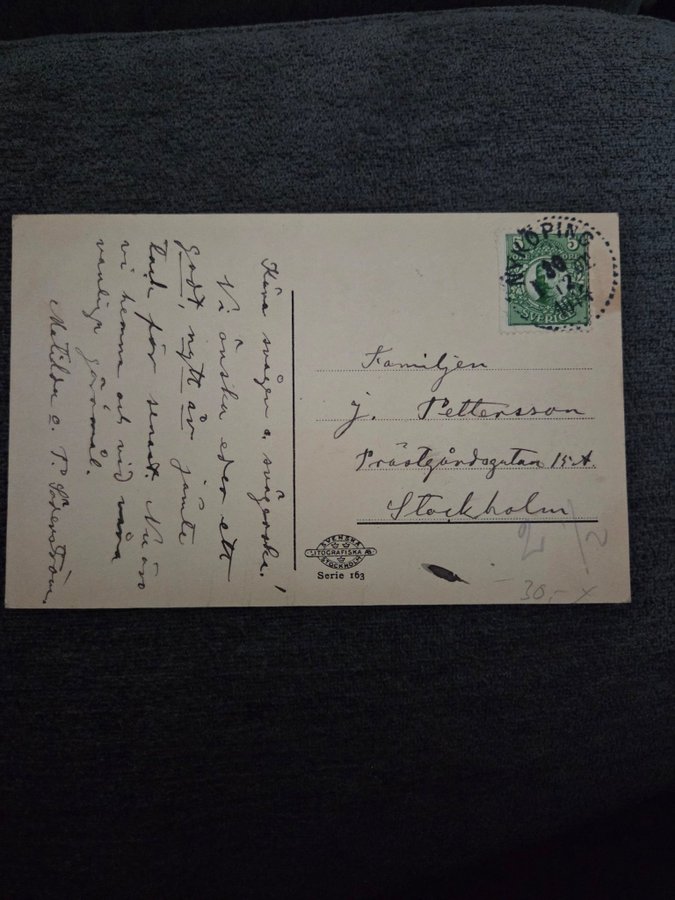 Kära svåger o. svägerska!
Vi önska eder ett
godt, nytt år jämte
tack för senast. Nu äro
vi hemma och vid våra
vanliga göromål.
Matilda o. P. Söderström.
NYKÖPING
30
12
1914
5
5
SVERIGE
Familjen
J. Pettersson
Prästgårdsgatan 15 A.
Stockholm
SVENSKA
LITOGRAFISKA AB
STOCKHOLM
Serie 163
30,- x